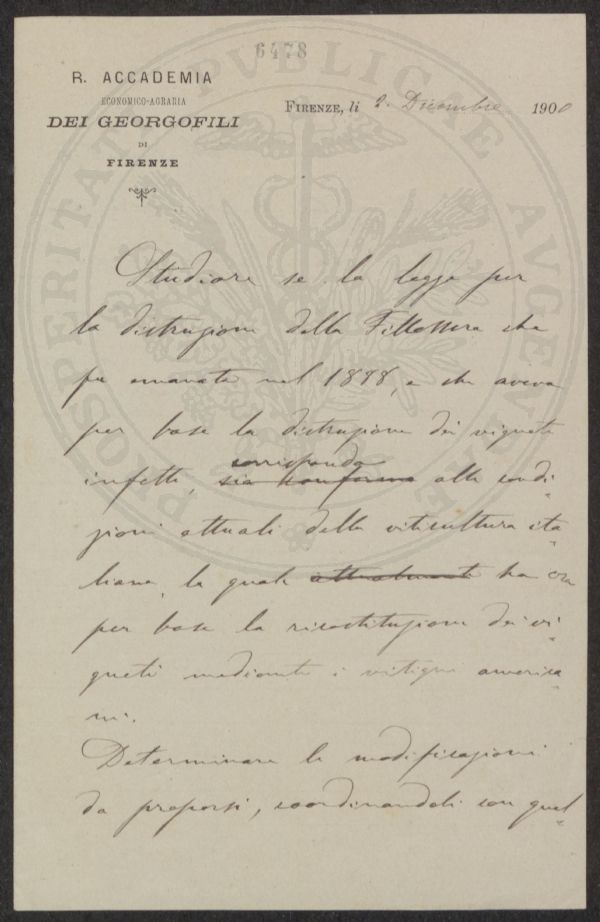 6478
R. ACCADEMIA
ECONOMICO-AGRARIA
DEI GEORGOFILI
DI
FIRENZE
FIRENZE, li 2 Dicembre 1900
PROSPERITATI PVBLICAE AVGENDAE
Studiare se la legge per
la distruzione della Fillossera che
fu emanata nel 1888, e che aveva
per base la distruzione dei vigneti
corrisponda
infetti, sia conforme alle condi-
zioni attuali della viticultura ita-
liana, la quale attualmente ha ora
per base la ricostituzione dei vi-
gneti mediante i vitigni america-
ni.
Determinare le modificazioni
da proporsi, coordinandole con quel-